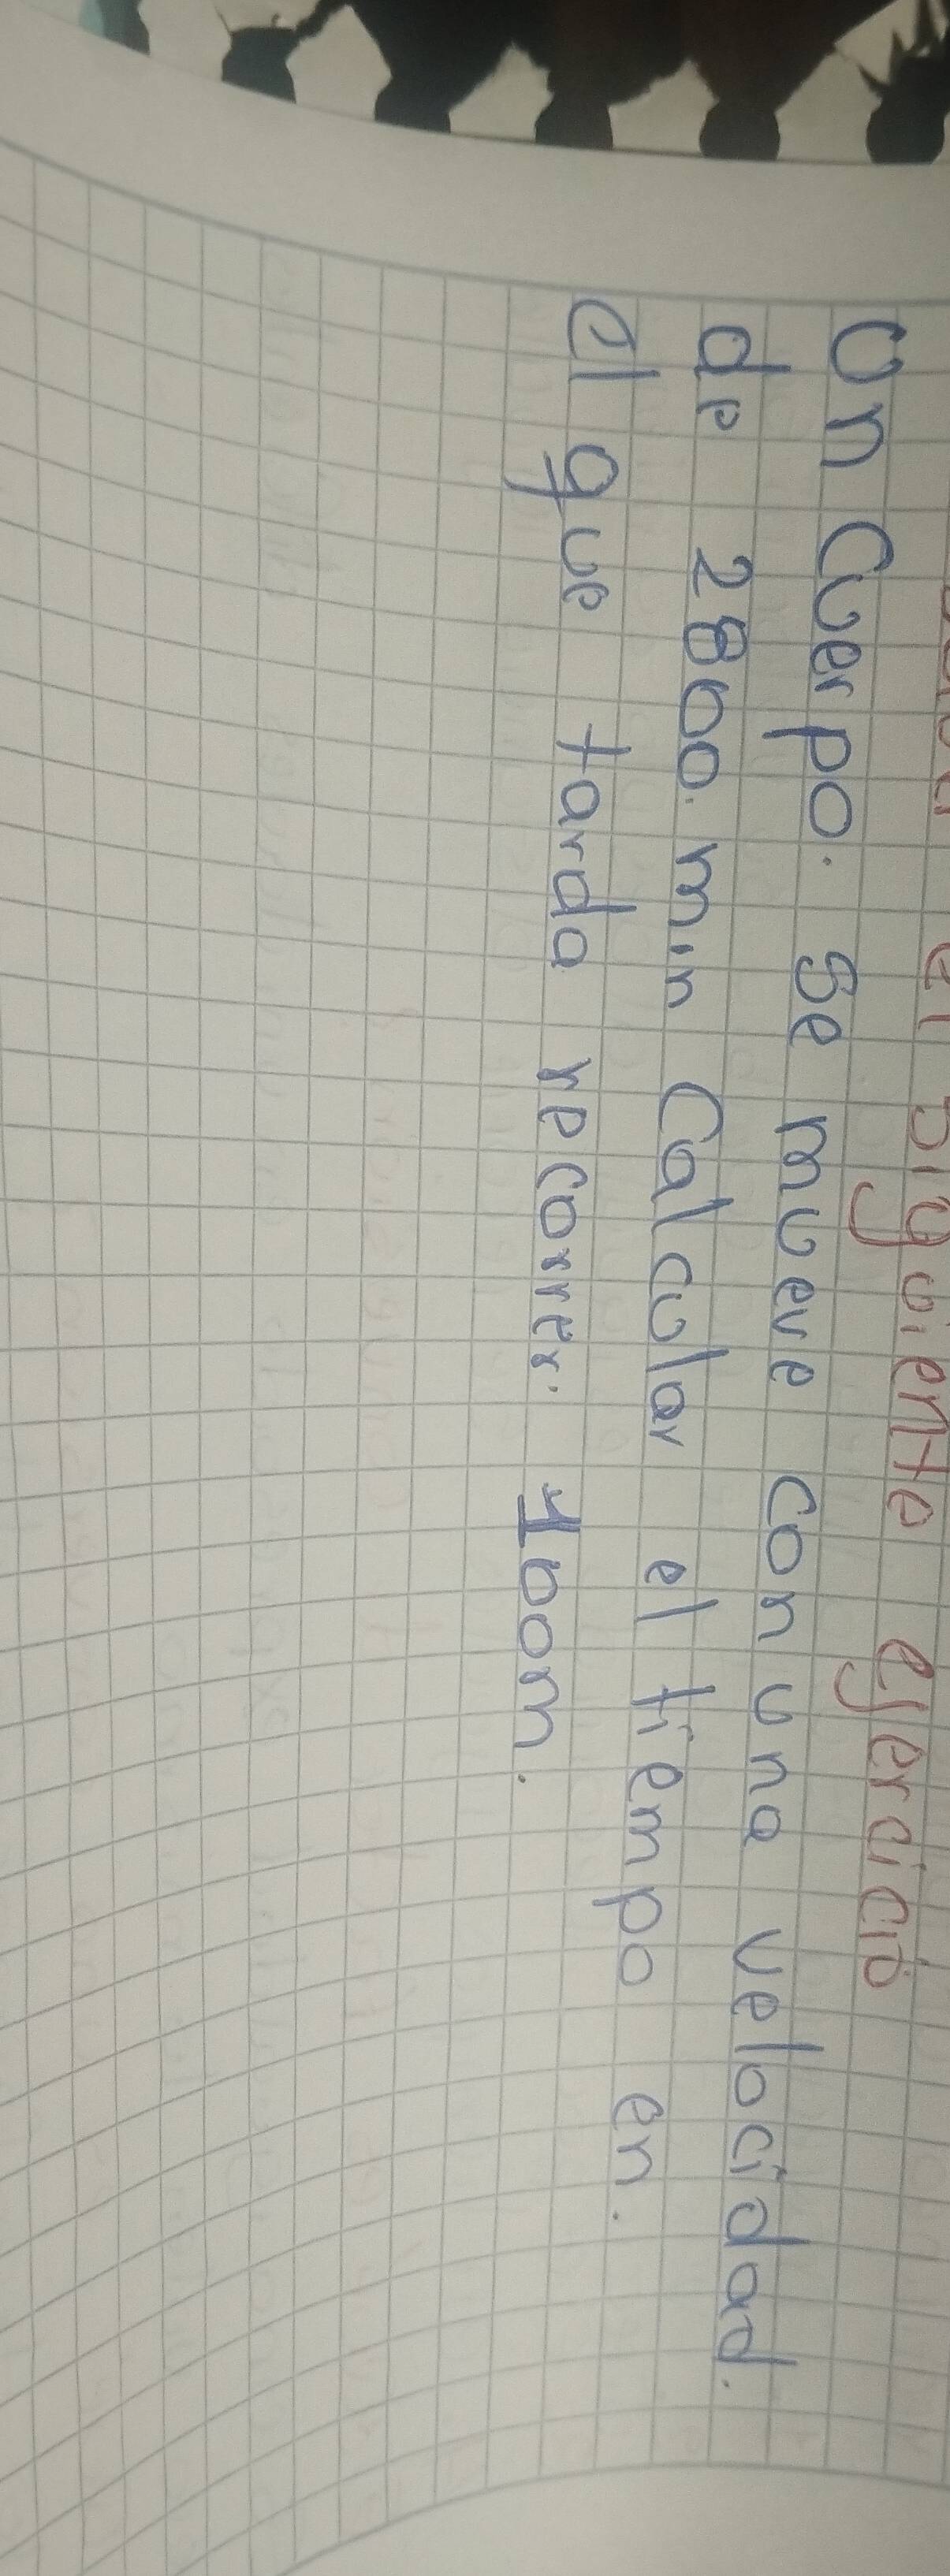 el siguiente ejercicio
Un Cuerpo. Se mueve con una velocidad.
de 2800. min Calcular el tiempo en.
el que tarda recorrer. 100m.